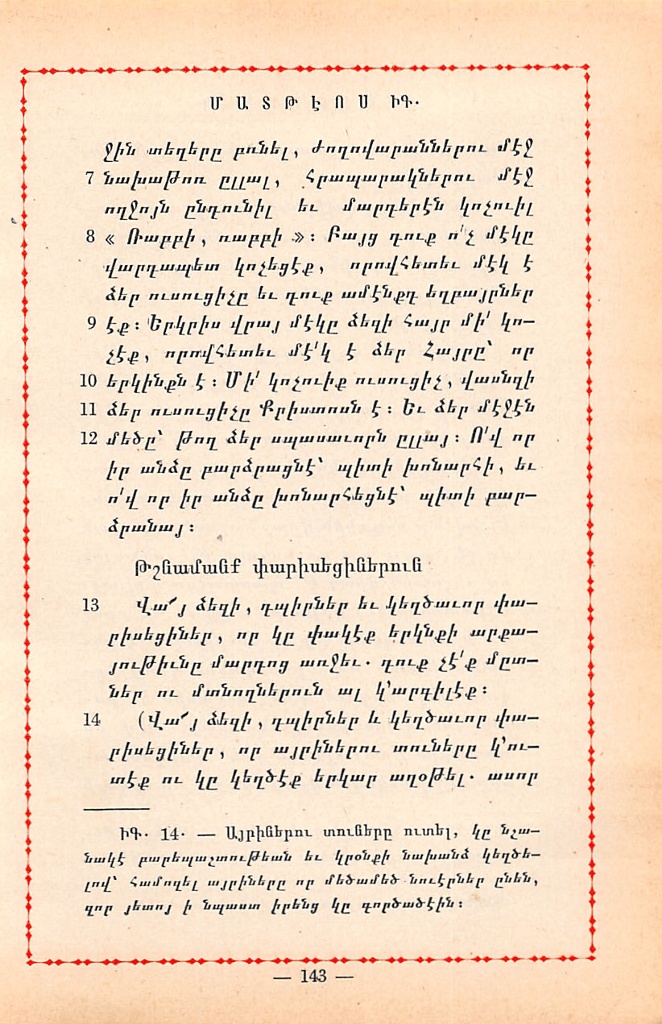 ՄԱՏԹԷՈՍ ԻԳ.
ջին տեղերը բռնել, ժողովարաններու մէջ
7 նախաթոռ ըլլալ, հրապարակներու մէջ
ողջոյն ընդունիլ եւ մարդերէն կոչուիլ
8 « Ռաբբի, ռաբբի »: Բայց դուք ո՛չ մէկը
վարդապետ կոչեցէք, որովհետեւ մէկ է
ձեր ուսուցիչը եւ դուք ամէնքդ եղբայրներ
9 էք: Երկրիս վրայ մէկը ձեզի հայր մի՛ կո—
չէք, որովհետեւ մէ՛կ է ձեր Հայրը՝ որ
10 երկինքն է: Մի՛ կոչուիք ուսուցիչ, վասնզի
11 ձեր ուսուցիչը Քրիստոսն է: Եւ ձեր մէջէն
12 մեծը՝ թող ձեր սպասաւորն ըլլայ: Ո՛վ որ
իր անձը բարձրացնէ՝ պիտի խոնարհի, եւ
ո՛վ որ իր անձը խոնարհեցնէ՝ պիտի բար—
ձրանայ:
Թշնամանք փարիսեցիներուն
13 Վա՜յ ձեզի, դպիրներ եւ կեղծաւոր փա—
րիսեցիներ, որ կը փակէք երկնքի արքա—
յութիւնը մարդոց առջեւ. դուք չէ՛ք մըտ—
ներ ու մտնողներուն ալ կ՚արգիլէք:
14 (Վա՜յ ձեզի, դպիրներ և կեղծաւոր փա—
րիսեցիներ, որ այրիներու տուները կ՚ու—
տէք ու կը կեղծէք երկար աղօթել. ասոր
ԻԳ. 14. — Այրիներու տուները ուտել, կը նշա—
նակէ բարեպաշտութեան եւ կրօնքի նախանձ կեղծե—
լով՝ համոզել այրիները որ մեծամեծ նուէրներ ընեն,
զոր յետոյ ի նպաստ իրենց կը գործածէին:
— 143 —